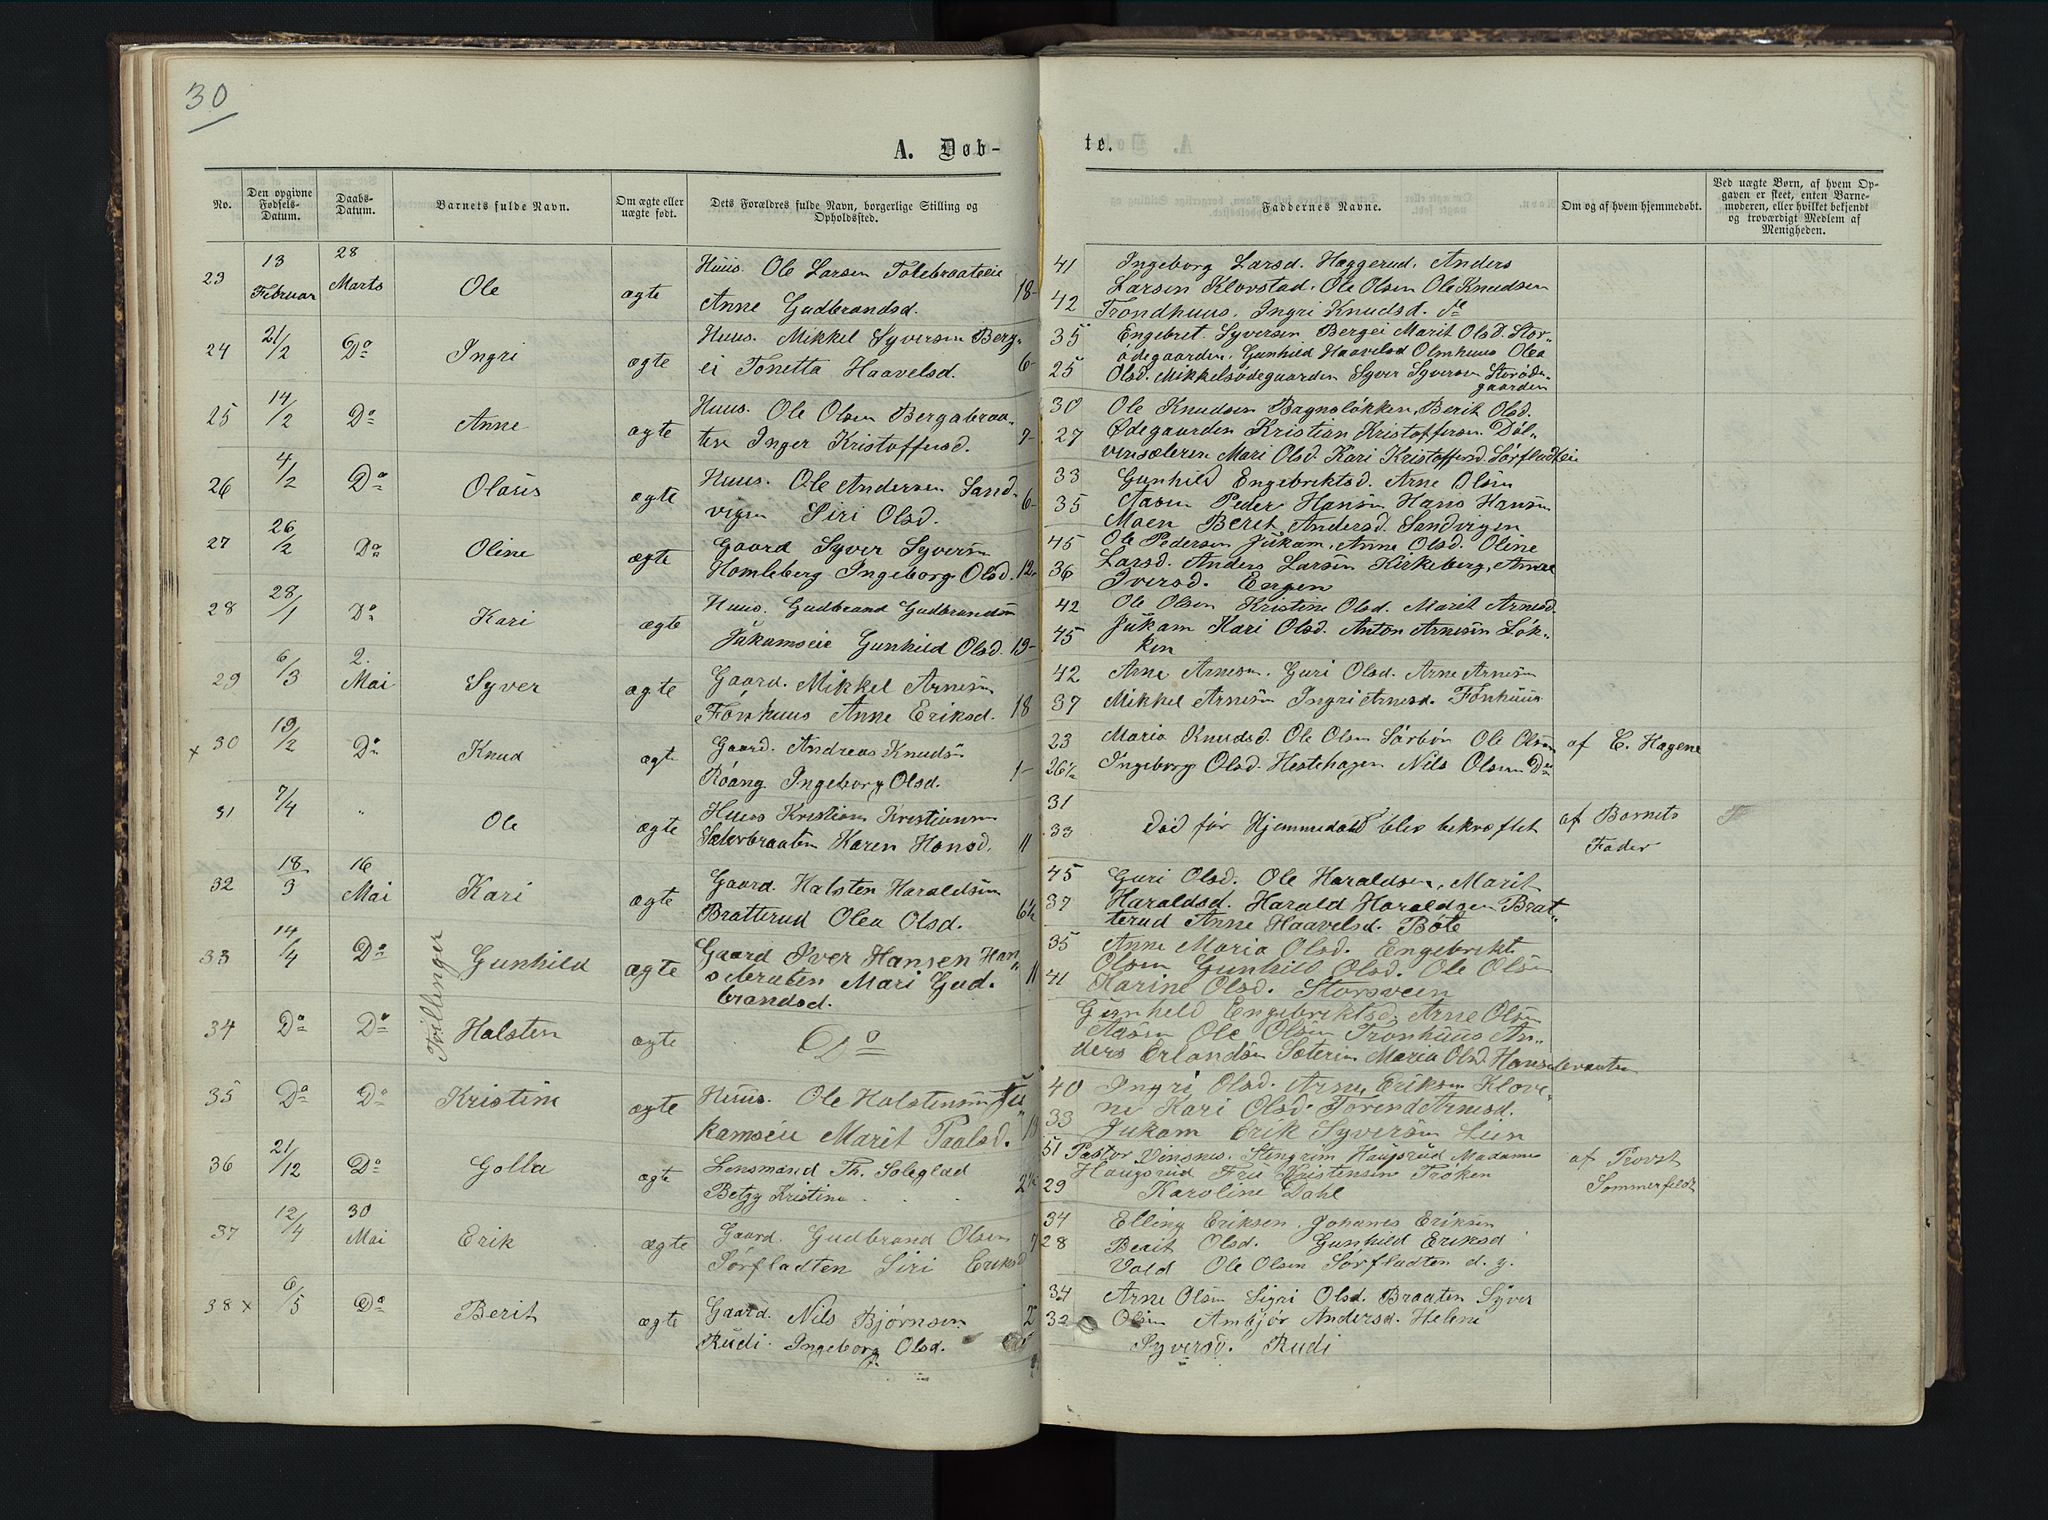 30
A. Døb-
te.
No.
Den opgivne Fødsels-Datum.
Daabs-Datum.
Barnets fulde Navn.
Om ægte eller uægte født.
Dets Forældres fulde Navn, borgerlige Stilling og Opholdssted.
Faddernes Navne.
Om og af hvem hjemmedøbt.
Ved uægte Børn, af hvem Opgaven er skeet, enten Barnemoderen, eller hvilket bekjendt og troværdigt Medlem af Menigheden.
23 13 Februar 28 Marts Ole ægte Huus. Ole Larsen Tolebraateeie 18-
Anne Gudbrandsd.
41 Ingeborg Larsd. Haggerud, Anders
Larsen Klovstad, Ole Olsen Ole Knudsen
42 Trondhuus, Ingri Knudsd. do
24 21/2 Do Ingri ægte Huus. Mikkel Syversen Berg-
ei Tonetta Haavelsd. 6-
35 Engebret Syversen Bergei Marit Olsd. Stor-
ødegaarden, Gunhild Haavelsd Olmhuus Olea
25 Olsd. Mikkelsødegaarden Syver Syversen Storøde-
gaarden
25 14/2 Do Anne ægte Huus. Ole Olsen Bergabraa-
ten Inger Kristoffersd. 7-
30 Ole Knudsen Bagnsløkken, Berit Olsd.
27 Ødegaarden Kristian Kristoffersen Døl-
vensæteren Mari Olsd. Kari Kristoffersd. Sørfladteie
26 4/2 Do Olaus ægte Huus. Ole Andersen Sand-
vigen Siri Olsd. 6-
33 Gunhild Engebriktsd. Arne Olsen
35 Aasen Peder Hansen Hans Hansen
Moen Berit Andersd. Sandvigen
27 26/2 Do Oline ægte Gaard Syver Syversen
Homleberg Ingeborg Olsd. 12-
45 Ole Pedersen Jukam, Anne Olsd. Oline
36 Larsd. Anders Larsen Kirkeberg, Anne
Iversd. Engen
28 28/1 Do Kari ægte Huus. Gudbrand Gudbrandsen
Jukamseie Gunhild Olsd. 19-
42 Ole Olsen Kristine Olsd. Marit Arnesd.
45 Jukam Kari Olsd. Anton Arnesen Løk-
ken
29 6/3 2. Mai Syver ægte Gaard. Mikkel Arnesen
Fønhuus Anne Eriksd. 18
42 Arne Arnesen. Guri Olsd. Arne Arnesen
37 Mikkel Arnesen Ingri Arnesd. Fønhuus
x 30 19/2 Do Knud ægt Gaard. Andreas Knudsen
Roang Ingeborg Olsd. 1-
23 Maria Knudsd. Ole Olsen Sørbøn Ole Olsen
26½ Ingeborg Olsd. Hestehagen Nils Olsen Do
af C. Hagene
31 7/4 " Ole ægte Huus Kristian Kristiansen
Sæterbraaten Karen Hansd. 11
31
33 død før Hjemmedaab blev bekræftet af Barnets
Fader
32 18/3 16 Mai Kari ægte Gaard. Halsten Haraldsen
Bratterud Olea Olsd. 6½
45 Guri Olsd. Ole Haraldsen, Marit
37 Haraldsd. Harald Haraldsen Brat-
terud Anne Haavelsd. Bøte
Tvillinger
33 14/4 Do Gunhild ægte Gaard Iver Hansen Han-
sebraten Mari Gud- 11
brandsd.
35 Anne Maria Olsd. Engebrikt
Olsen Gunhild Olsd. Ole Olsen
41 Karine Olsd. Storsveen
34 Do Do Halsten ægte Do
Gunheld Engebriktsd. Arne Olsen
Aasen Ole Olsen Tronhuus An-
ders Erlandsen Sæteren Maria Olsd. Hansebraaten
35 Do Do Kristine ægte Huus. Ole Halstensen Ju-
kamseie Marit Paalsd. 13
40 Ingri Olsd. Arne Eriksen Klove-
ne Kari Olsd. Torend Arnesd.
33 Jukam Erik Syversen Lien
36 21/12 Do Golla ægte Lensmand Th. Soleglad
Betzy Kristine . . . 2½
51 Pastor Vinsnes. Stengrim Haugsrud Madame
Haugsrud Fru Kristensine Trøken
29 Karoline Dahl
af Provst
Sommerfeldt
37 12/4 30 Mai Erik ægte Gaard. Gudbrand Olsen
Sørfladten Siri Eriksd 7
34 Elling Eriksen. Johanes Eriksen
28 Berit Olsd. Gunhild Eriksd
Vold Ole Olsen Sørfladten d. y.
38 x 6/5 Do Berit ægte Gaard. Nils Bjørnsen
Rudi. Ingeborg Olsd. 2
34 Arne Olsen Sigri Olsd. Braaten Syver
32 Olsen Ambjør Andersd. Helene
Syversd. Rudi